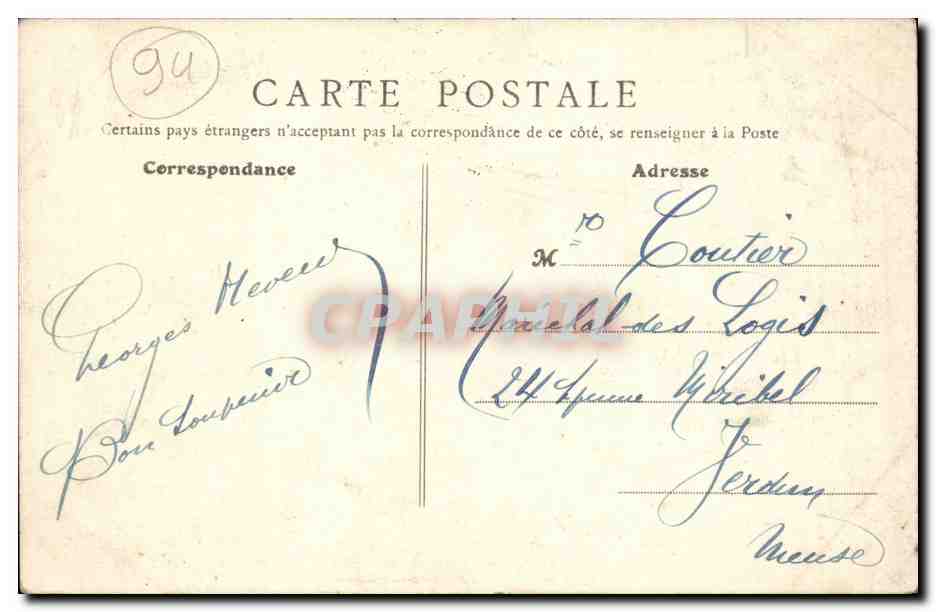 94
CARTE POSTALE
Certains pays étrangers n'acceptant pas la correspondance de ce côté, se renseigner à la Poste
Correspondance
Adresse
Georges
Bon Souvenir
M ro Coutier
Marechal-des Logis
24 Miribel
Verdun
Meuse
CPAPHIL